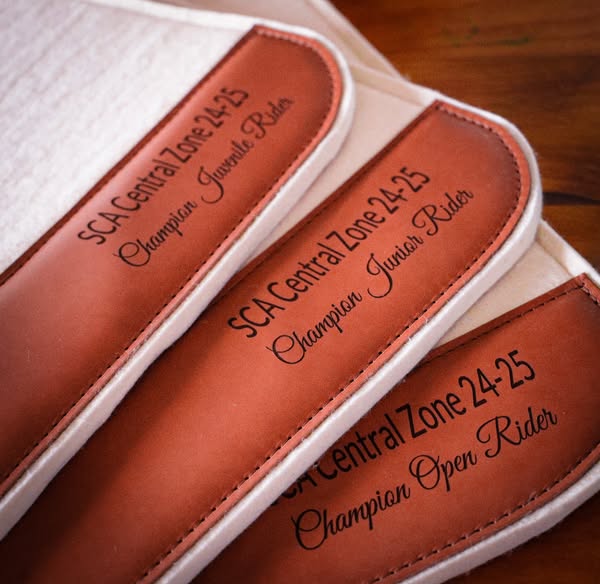 SCA Central Zone 24-25
Champion Juvenile Rider
SCA Central Zone 24-25
Champion Junior Rider
SCA Central Zone 24-25
Champion Open Rider